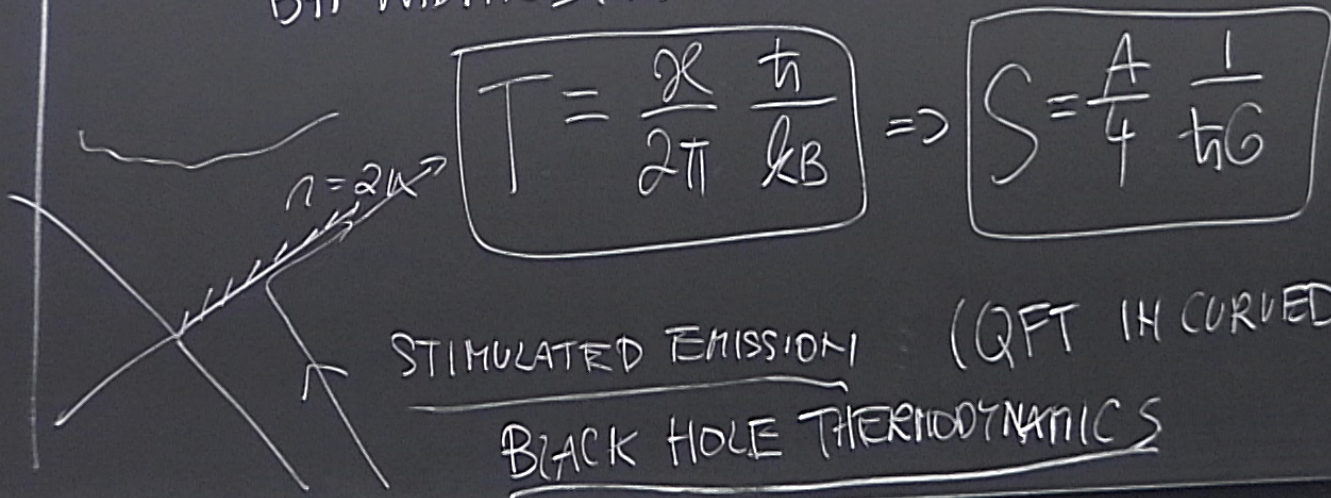 T = ϰ/2π ħ/kB => S = A/4 1/ħG
r = 2M
STIMULATED EMISSION (QFT IN CURVED
BLACK HOLE THERMODYNAMICS